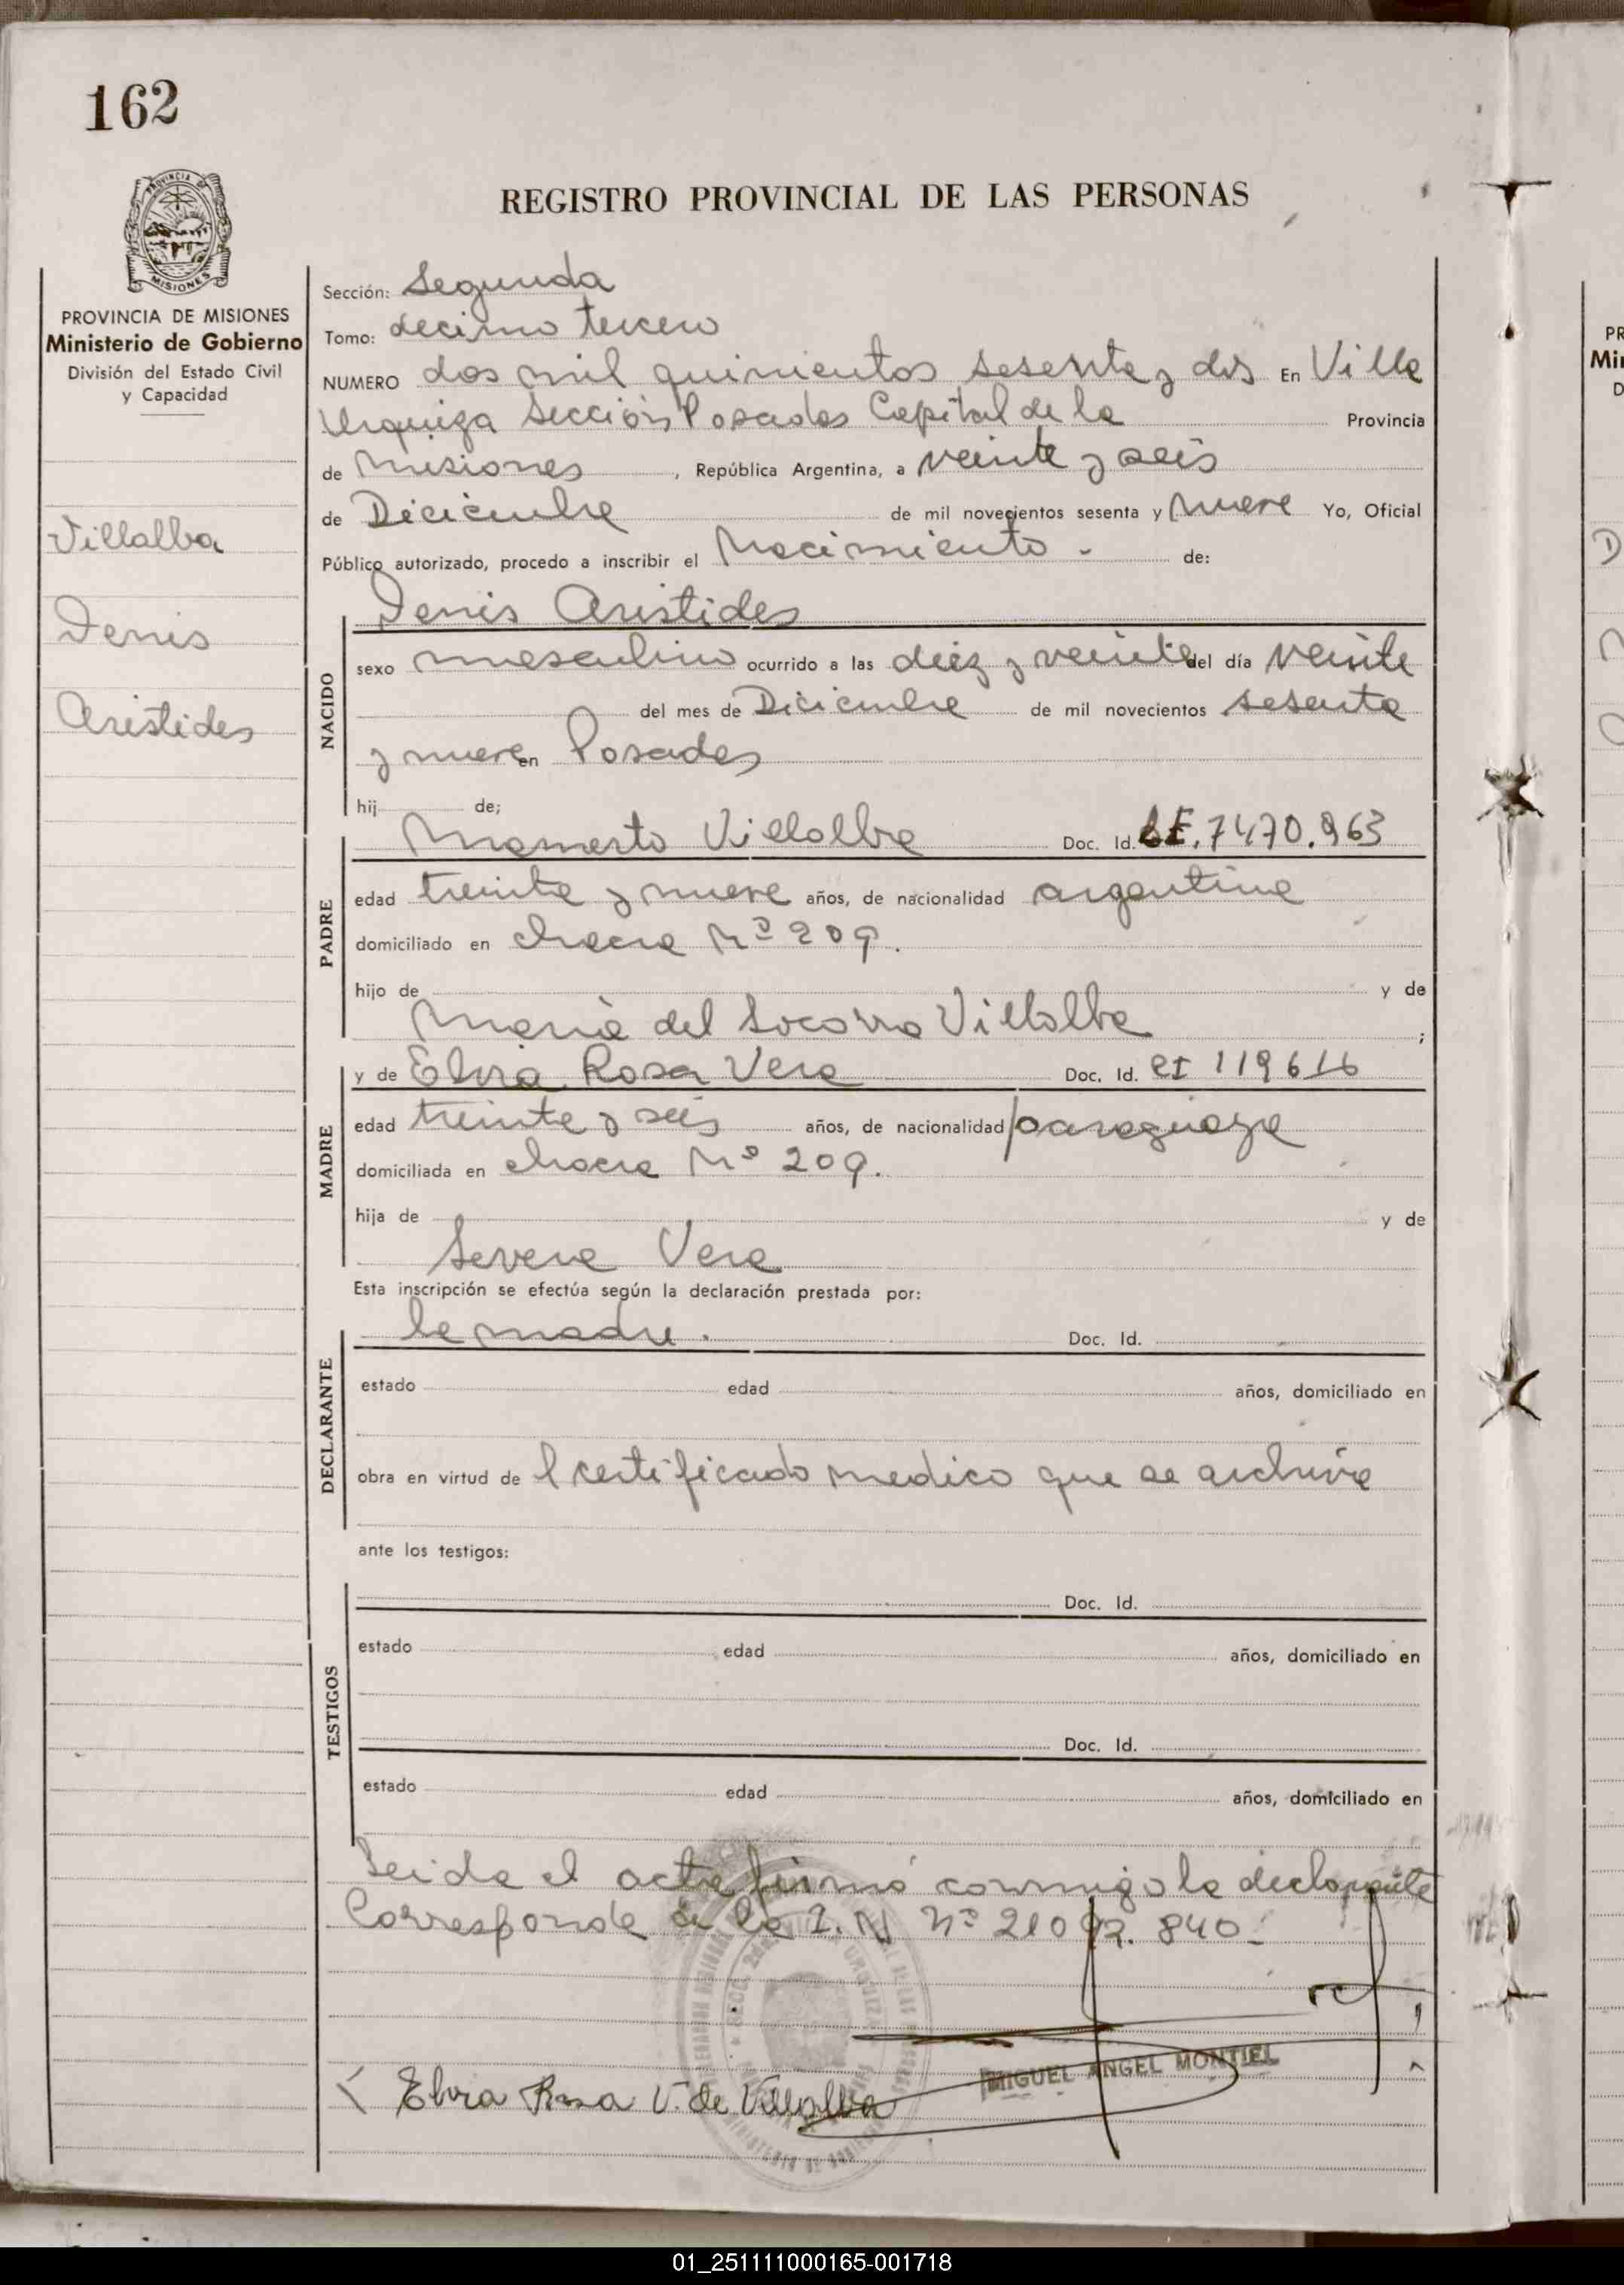 162
PROVINCIA DE
MISIONES
REGISTRO PROVINCIAL DE LAS PERSONAS
PROVINCIA DE MISIONES
Ministerio de Gobierno
División del Estado Civil
y Capacidad
Villalba
Denis
Aristides
Sección: Segunda
Tomo: decimo tercero
NUMERO dos mil quinientos sesenta y dos En Villa
Urquiza Sección Posadas Capital de la Provincia
de Misiones, República Argentina, a veinte y seis
de Diciembre de mil novecientos sesenta y nueve Yo, Oficial
Público autorizado, procedo a inscribir el Nacimiento - de:
Denis Aristides
NACIDO
sexo masculino ocurrido a las diez y veinte del día veinte
del mes de Diciembre de mil novecientos sesenta
y nueve en Posadas
hij de;
Mamerto Villalba Doc. Id. LE. 7470.963
PADRE
edad treinta y nueve años, de nacionalidad argentina
domiciliado en chacra Nº 209.
hijo de y de
Maria del Socorro Villalba ;
y de Elvia Rosa Vera Doc. Id. CI 119616
MADRE
edad treinta y seis años, de nacionalidad paraguaya
domiciliada en chacra Nº 209.
hija de y de
Severa Vera
Esta inscripción se efectúa según la declaración prestada por:
la madre. Doc. Id.
DECLARANTE
estado edad años, domiciliado en
obra en virtud de l certificado medico que se archiva
ante los testigos:
Doc. Id.
TESTIGOS
estado edad años, domiciliado en
Doc. Id.
estado edad años, domiciliado en
Leida el acta firmó conmigo la declarante
Corresponde a la I. N Nº 21092.840-
MIGUEL ANGEL MONTIEL
Elvia Rosa V. de Villalba
PR
Mi
D
01_251111000165-001718